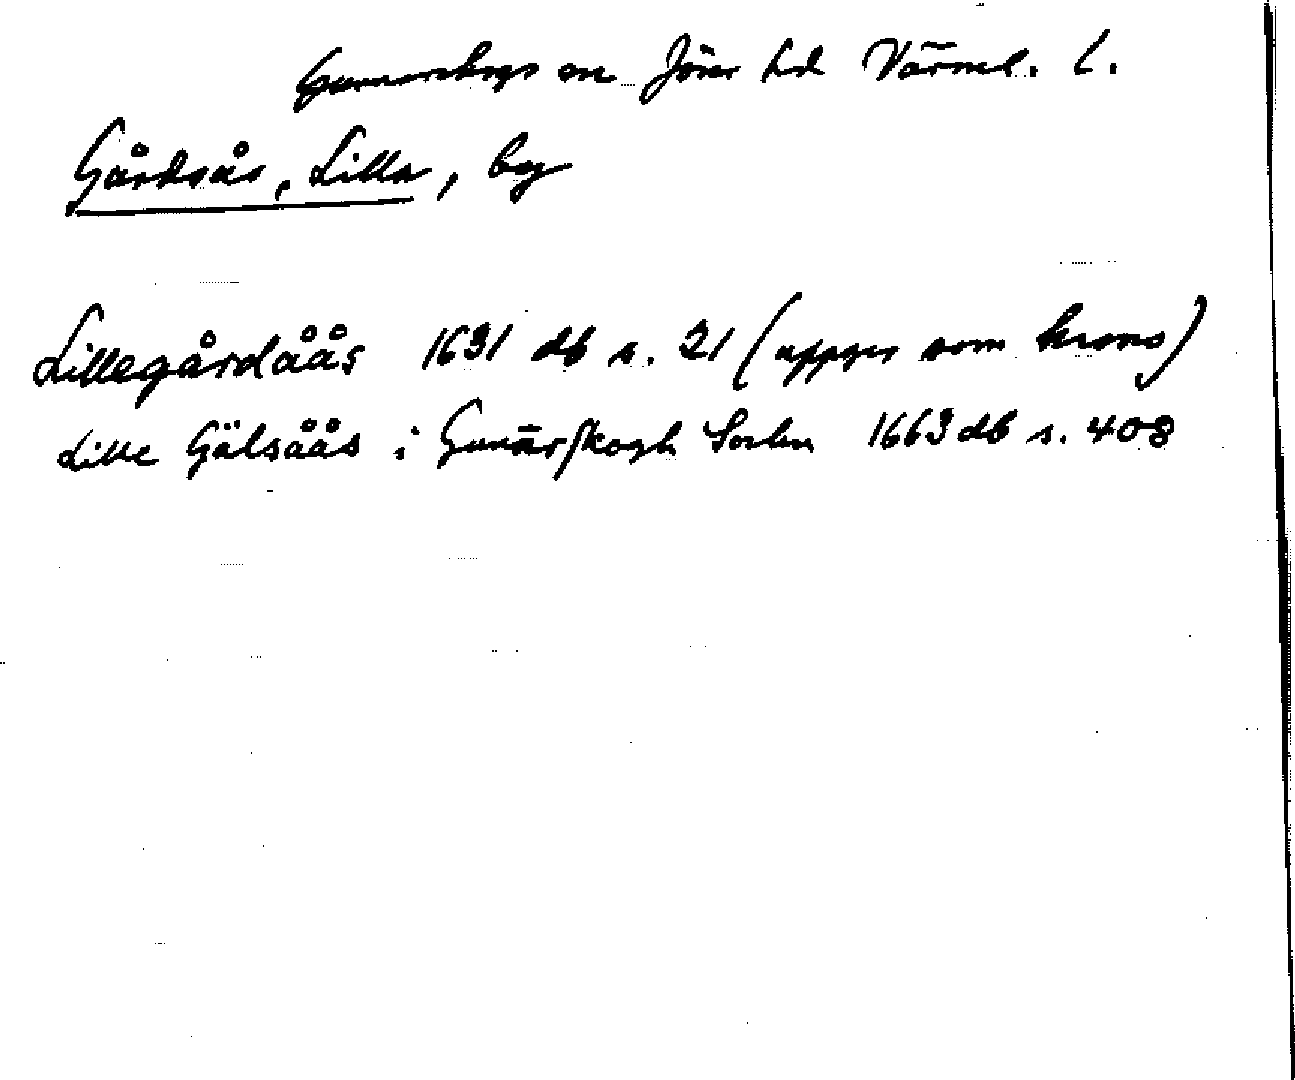 Gunnarskogs sn Jösse hd Värml. l.
Gårdsås, Lilla, by
Lillegårdåås 1631 db s. 21 (uppges som krono)
Lille Gälsåås i Gunārskogh Sochn 1663 db s. 408